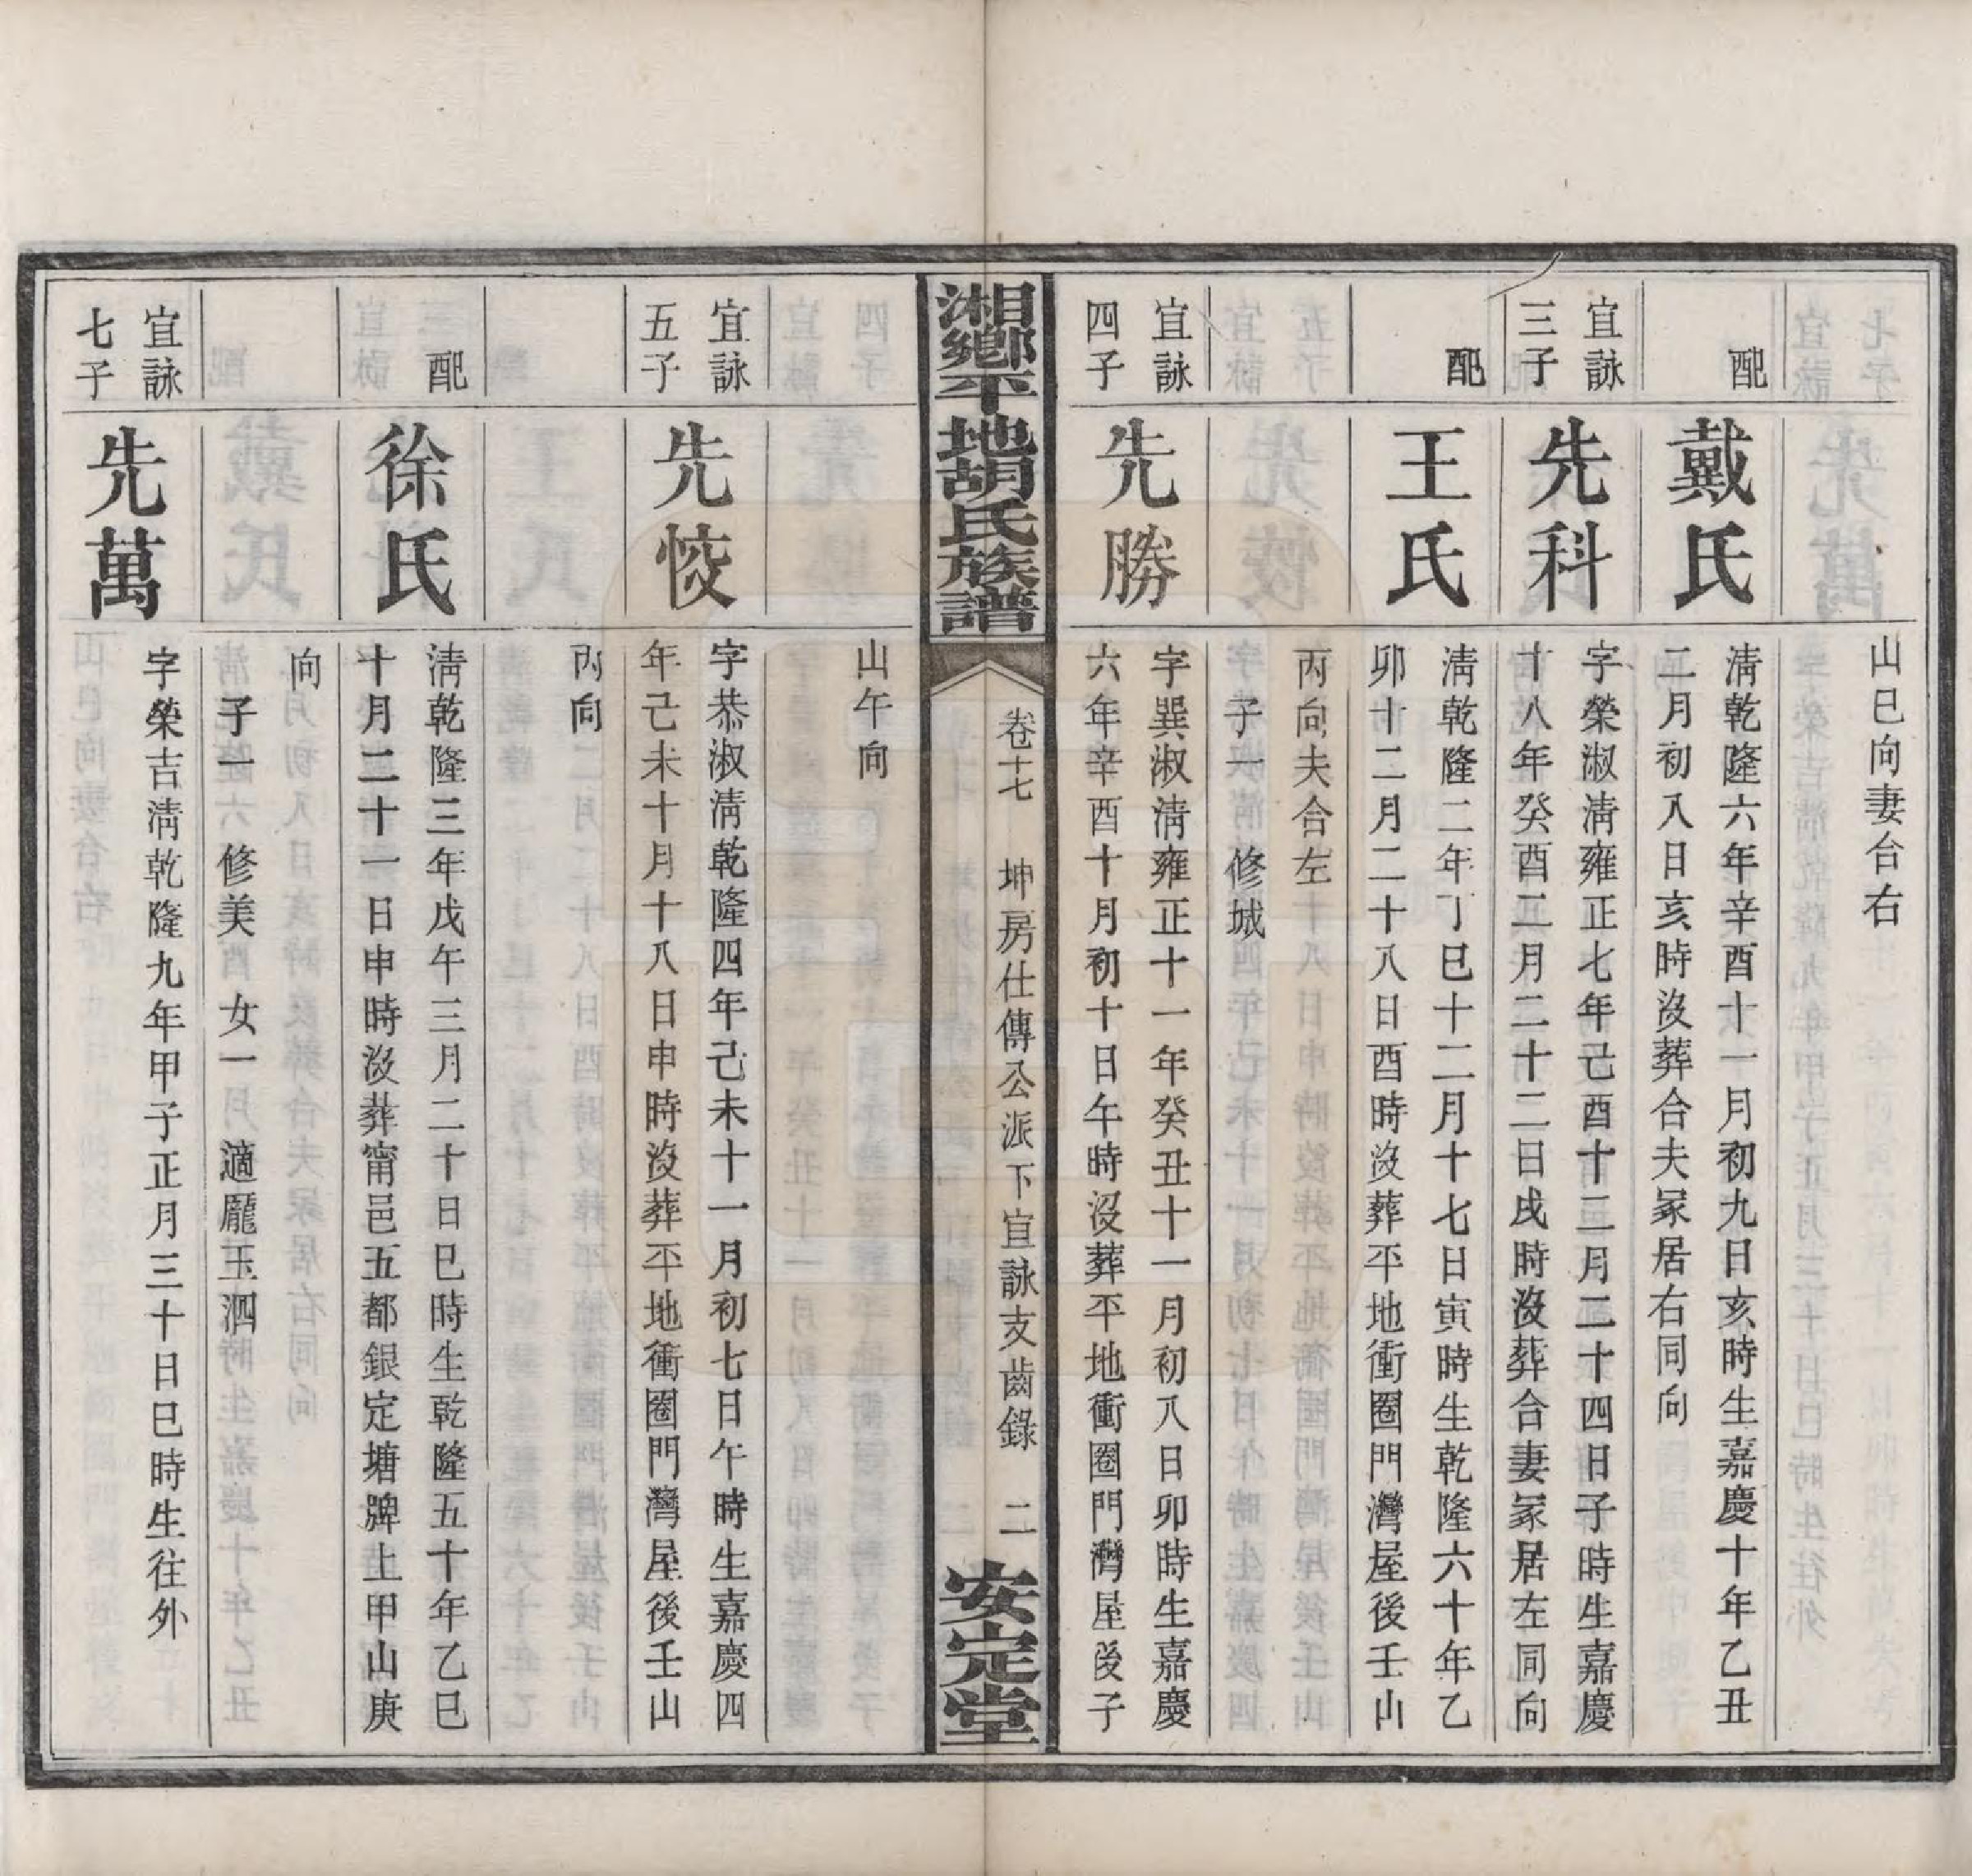 山巳向妻合右
配
戴氏
淸乾隆六年辛酉十一月初九日亥時生嘉慶十年乙丑
二月初八日亥時沒葬合夫冢居右同向
宜詠
三子
先科
字榮淑淸雍正七年己酉十二月二十四日子時生嘉慶
十八年癸酉二月二十二日戌時沒葬合妻冢居左同向
配
王氏
淸乾隆二年丁巳十二月十七日寅時生乾隆六十年乙
卯十二月二十八日酉時沒葬平地衝圈門灣屋後壬山
丙向夫合左
子一　修城
宜詠
四子
先勝
字巽淑淸雍正十一年癸丑十一月初八日卯時生嘉慶
六年辛酉十月初十日午時沒葬平地衝圈門灣屋後子
湘鄉平地胡氏族譜
卷十七　坤房仕傳公派下宜詠支齒錄　二
安定堂
山午向
宜詠
五子
先恔
字恭淑淸乾隆四年己未十一月初七日午時生嘉慶四
年己未十月十八日申時沒葬平地衝圈門灣屋後壬山
丙向
配
徐氏
淸乾隆三年戊午三月二十日巳時生乾隆五十年乙巳
十月二十一日申時沒葬甯邑五都銀定塘牌上甲山庚
向
子一　修美　女一　適龎玉泗
宜詠
七子
先萬
字榮吉淸乾隆九年甲子正月三十日巳時生往外